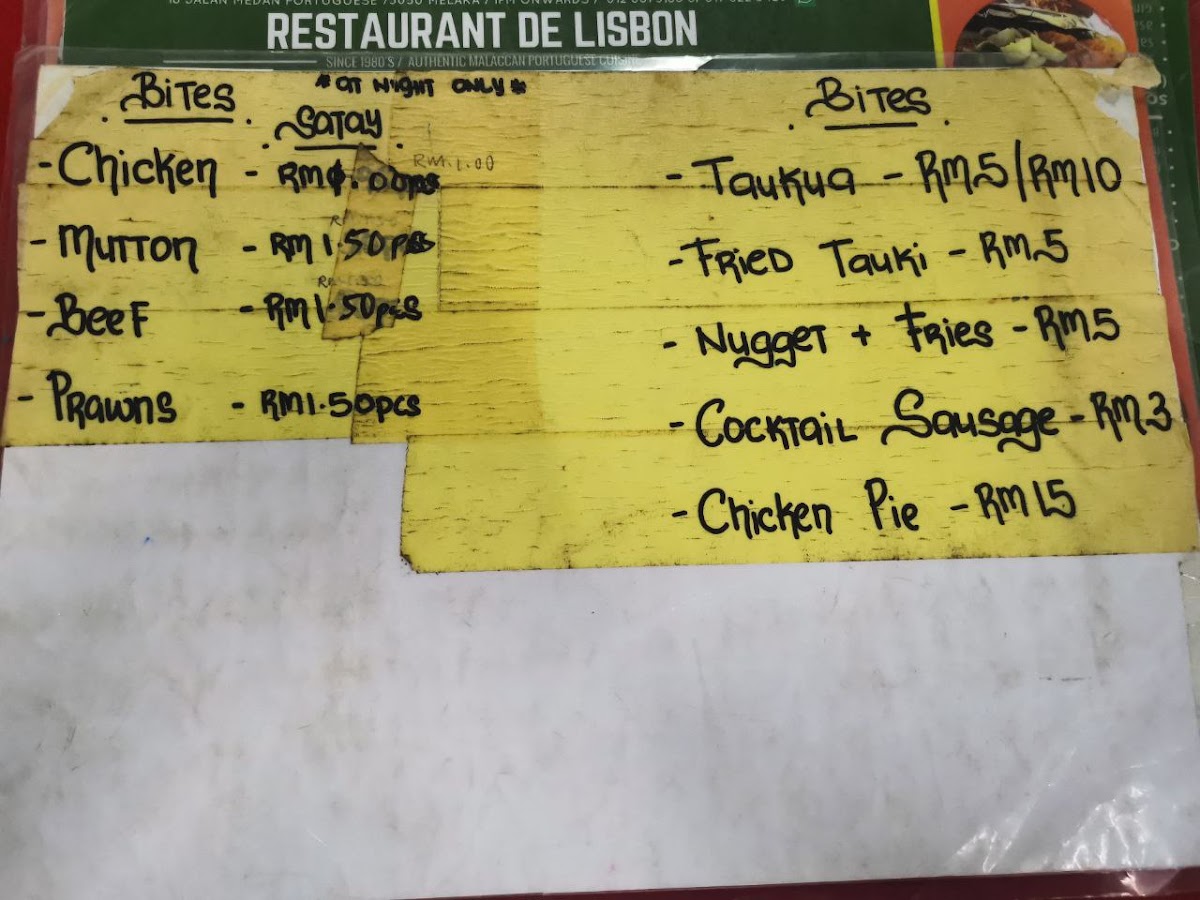 RESTAURANT DE LISBON
SINCE 1980'S / AUTHENTIC MALACCAN PORTUGUESE CUISINE
BITES
*at Night ONLY*
Satay
- Chicken - RM 00pcs
RM.1.00
- Mutton - RM 1.50pcs
- Beef - RM1.50pcs
- Prawns - RM1.50pcs
BITES
- Taukua - RM5/RM10
- Fried Tauki - RM.5
- Nugget + Fries - RM.5
- Cocktail Sausage - RM.3
- Chicken Pie - RM 15